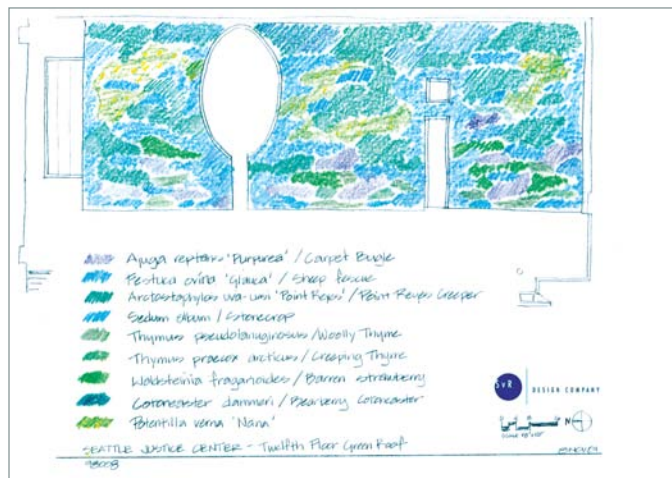 Ajuga reptans 'Purpurea' / Carpet Bugle
Festuca ovina 'Glauca' / Sheep fescue
Arctostaphylos uva-ursi 'Point Reyes' / Point Reyes Creeper
Sedum album / Stonecrop
Thymus pseudolanuginosus / Woolly Thyme
Thymus praecox arcticus / Creeping Thyme
Waldsteinia fragarioides / Barren strawberry
Cotoneaster dammeri / Bearberry Cotoneaster
Potentilla verna 'Nana'
SvR DESIGN COMPANY
N
SEATTLE JUSTICE CENTER - Twelfth Floor Green Roof
98008